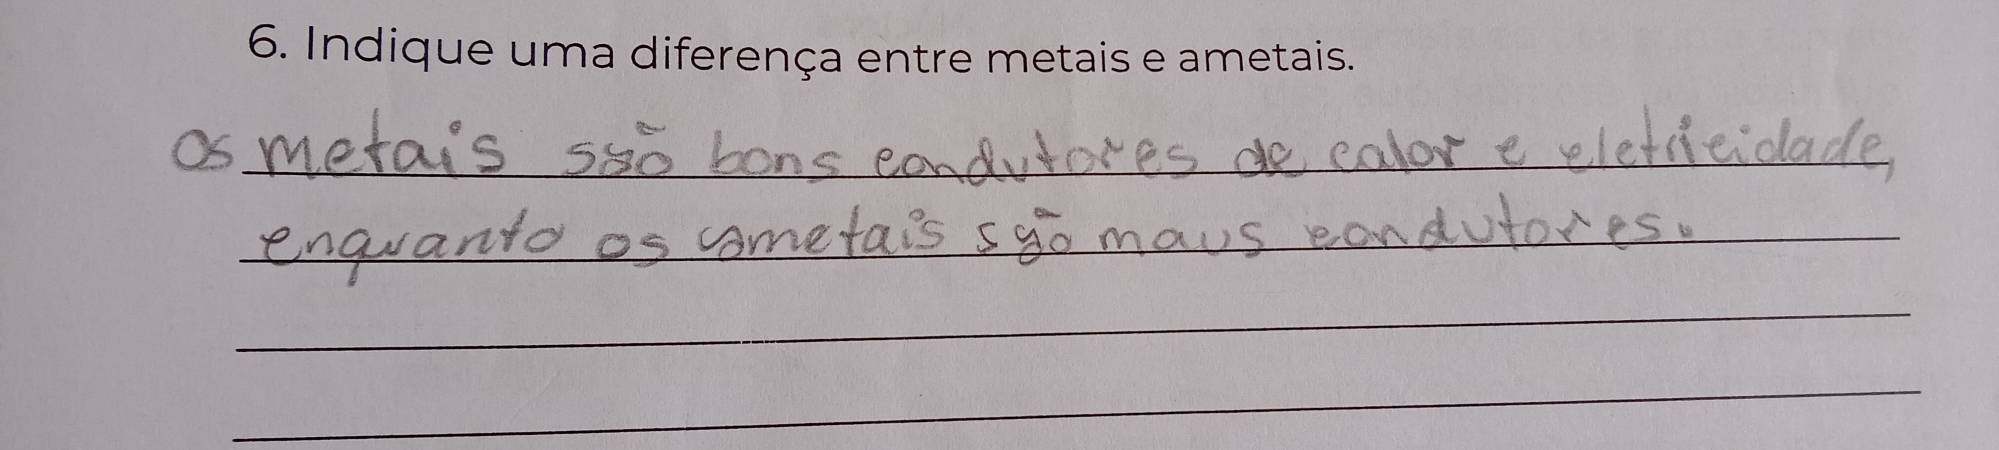 6. Indique uma diferença entre metais e ametais.
Os metais são bons condutores de calor e eletricidade,
enquanto os ametais são maus condutores.